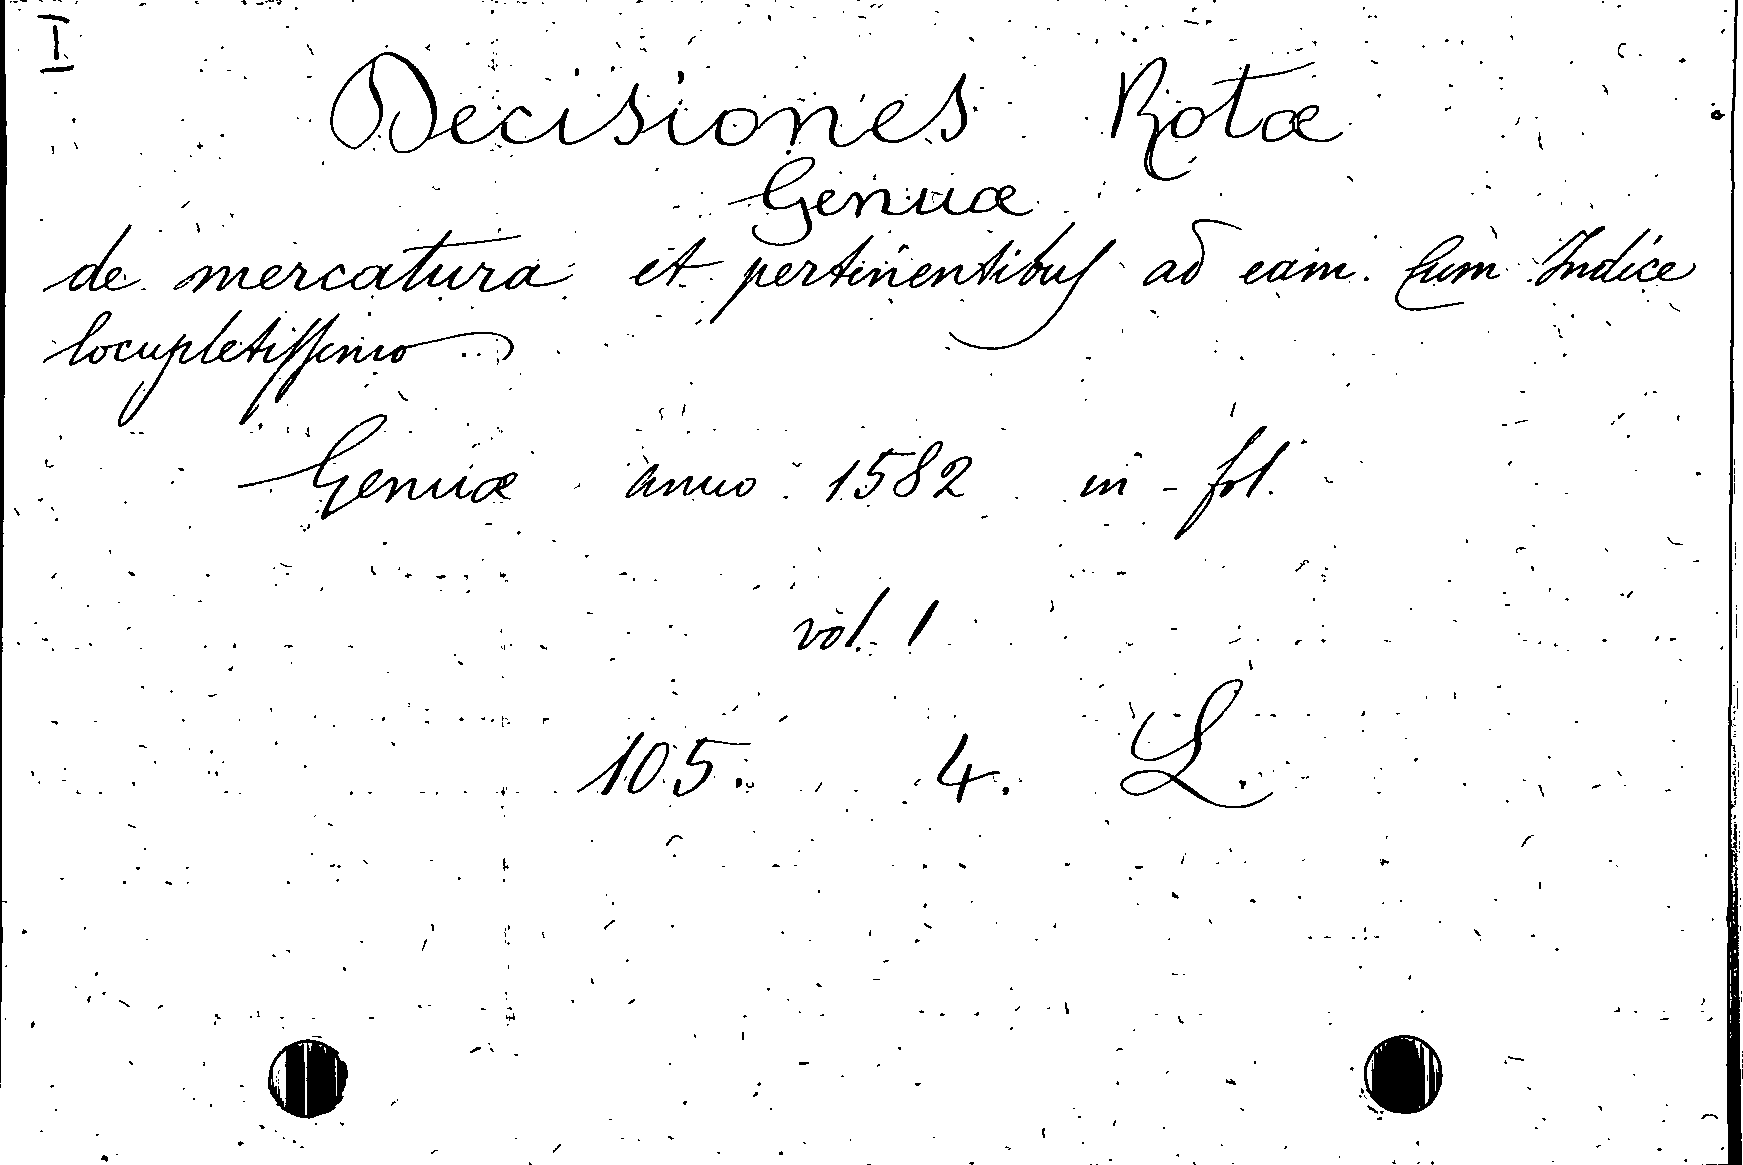 I
Decisiones Rotæ
Genuæ
de mercatura et pertinentibus ad eam. Cum Indice
locupletissimo
Genuæ anno 1582 in-fol.
vol. 1
105. 4. L.